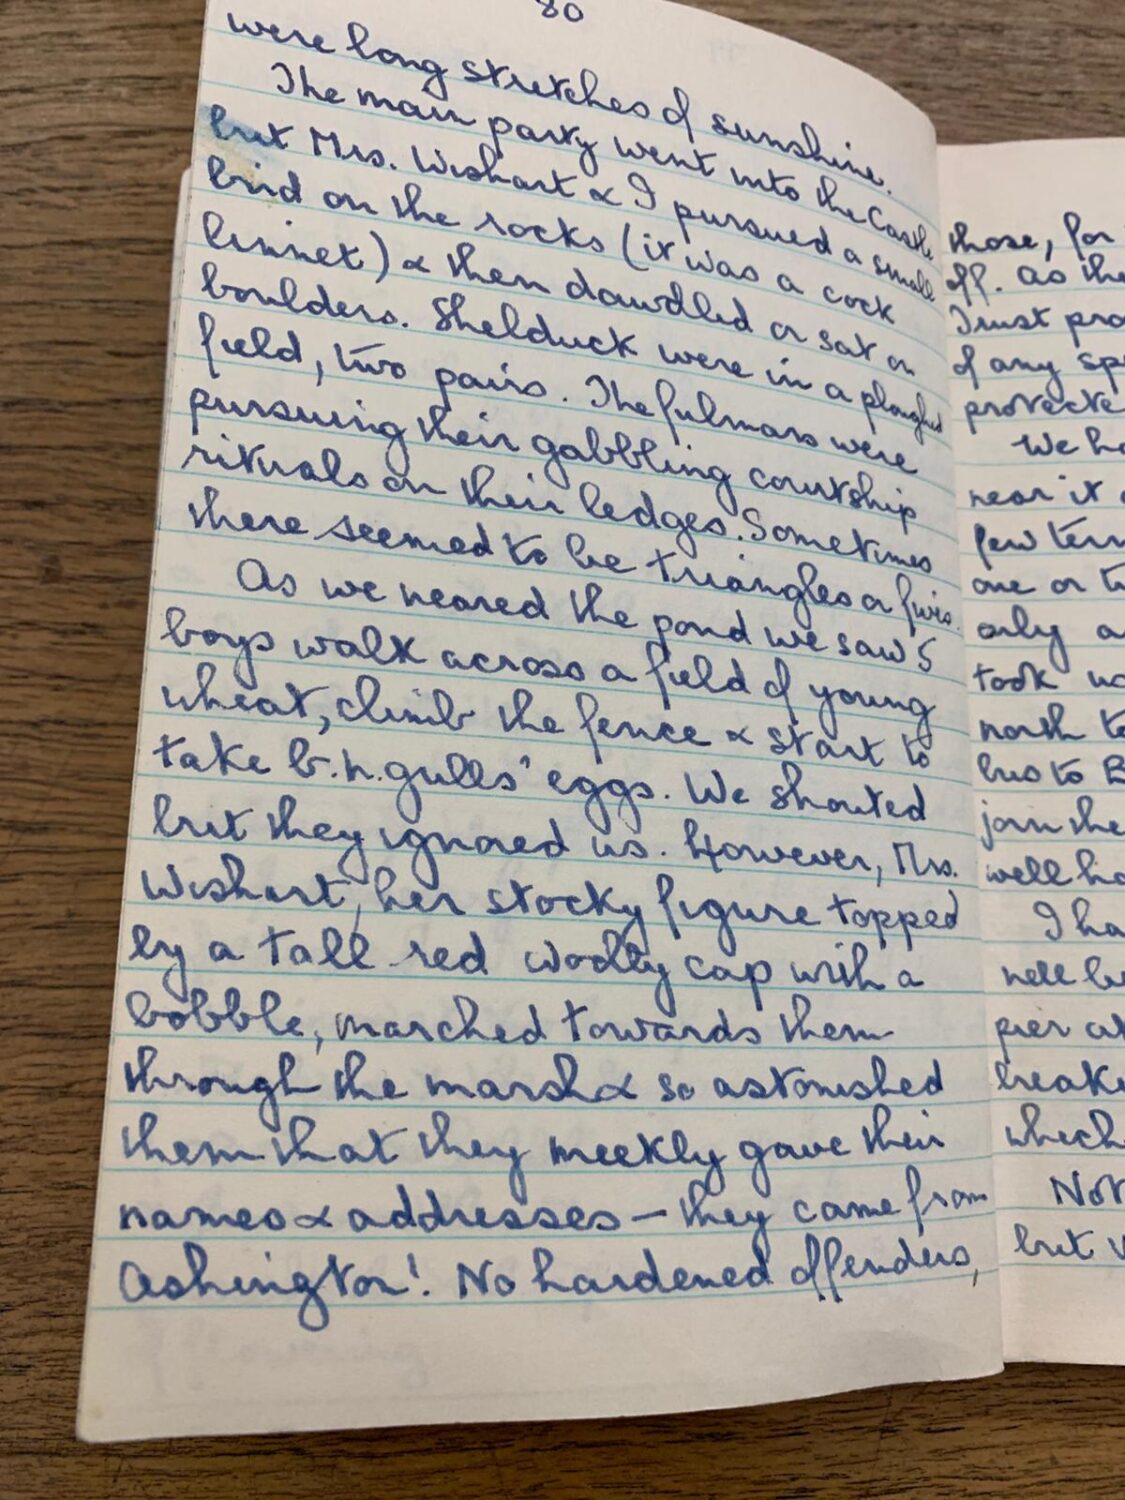 80
were long stretches of sunshine.
The main party went into the Castle
but Mrs. Wishart & I pursued a small
bird on the rocks (it was a cock
linnet) & then dawdled or sat on
boulders. Shelduck were in a ploughed
field, two pairs. The fulmars were
pursuing their gabbling courtship
rituals on their ledges. Sometimes
there seemed to be triangles or fives.
As we neared the pond we saw 5
boys walk across a field of young
wheat, climb the fence & start to
take b.h. gulls' eggs. We shouted
but they ignored us. However, Mrs.
Wishart, her stocky figure topped
by a tall red woolly cap with a
bobble, marched towards them
through the marsh & so astonished
them that they meekly gave their
names & addresses – they came from
Ashington! No hardened offenders,
those, for
off. As the
Trust pro
of any sp
protecte
We ha
near it
few tern
one or t
only a
took
north to
bus to B
join the
well ha
I ha
nell bu
pier at
breake
which
Not
but